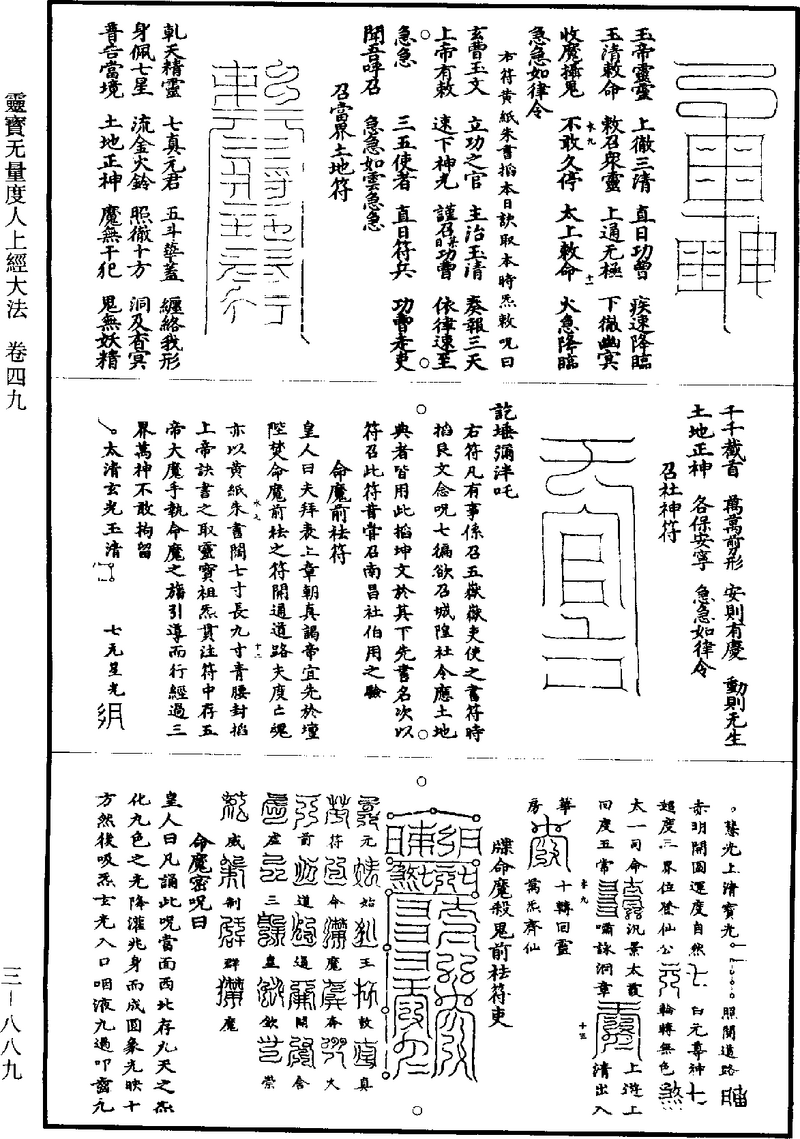 靈寶无量度人上經大法　卷四九
三－八八九
玉帝靈靈　上徹三清　直日功曹　疾速降臨
玉清敕命　敕召眾靈　上通无極　下徹幽冥
收魔攝鬼　不敢久停　太上敕命　火急降臨
急急如律令
右符黃紙朱書掐本日訣取本時炁敕呪曰
玄曹玉文　立功之官　主治玉清　奏報三天
上帝有敕　速下神光　謹召功曹　依律速至
急急　三五使者　直日符兵　功曹走吏
聞吾呼召　急急如雲急急
召當界土地符
乹天精靈　七真元君　五斗華蓋　纏絡我形
身佩七星　流金火鈴　照徹十方　洞及杳冥
普告當境　土地正神　魔無干犯　鬼無妖精
千千截首　萬萬剪形　安則有慶　動則无生
土地正神　各保安寧　急急如律令
召社神符
訖埵彌泮吒
右符凡有事係召五嶽嶽吏使之書符時
掐艮文念呪七徧欲召城隍社令應土地
典者皆用此掐坤文於其下先書名次以
符召此符昔嘗召南昌社伯用之驗
命魔前袪符
皇人曰夫拜表上章朝真謁帝宜先於壇
陛焚命魔前袪之符開通道路夫度亡魂
亦以黃紙朱書闊七寸長九寸青腰封掐
上帝訣書之取靈寶祖炁貫注符中存五
帝大魔手執命魔之旛引導而行經過三
界萬神不敢拘留
太清玄光玉清　七元星光
慧光上清寶光　照開道路
赤明開圖運度自然　白元尊神
超度三界位登仙公　輪轉無色
太一司命　汎景太霞　上遊上
回度五常　嘯詠洞章　清出入
華　十轉回靈
房　萬炁齊仙
牒命魔殺鬼前袪符吏
元　始　玉　敕　真
符　命　魔　奔　大
前　道　通　開　舍
虛　三　皇　欽　崇
威　制　群　魔
命魔密呪曰
皇人曰凡誦此呪當面西北存九天之炁
化九色之光降灌兆身而成圓象光映十
方然後吸炁玄光入口咽液九過叩齒九